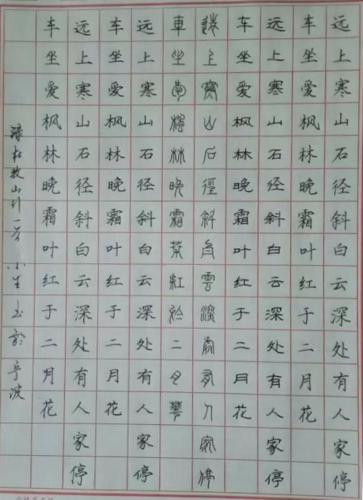 远上寒山石径斜白云深处有人家停
车坐爱枫林晚霜叶红于二月花
远上寒山石径斜白云深处有人家停
车坐爱枫林晚霜叶红于二月花
遠上寒山石徑斜白雲深處有人家停
車坐愛楓林晚霜葉紅於二月華
远上寒山石径斜白云深处有人家停
车坐爱枫林晚霜叶红于二月花
远上寒山石径斜白云深处有人家停
车坐爱枫林晚霜叶红于二月花
杜牧山行一首 小生 书於宁波